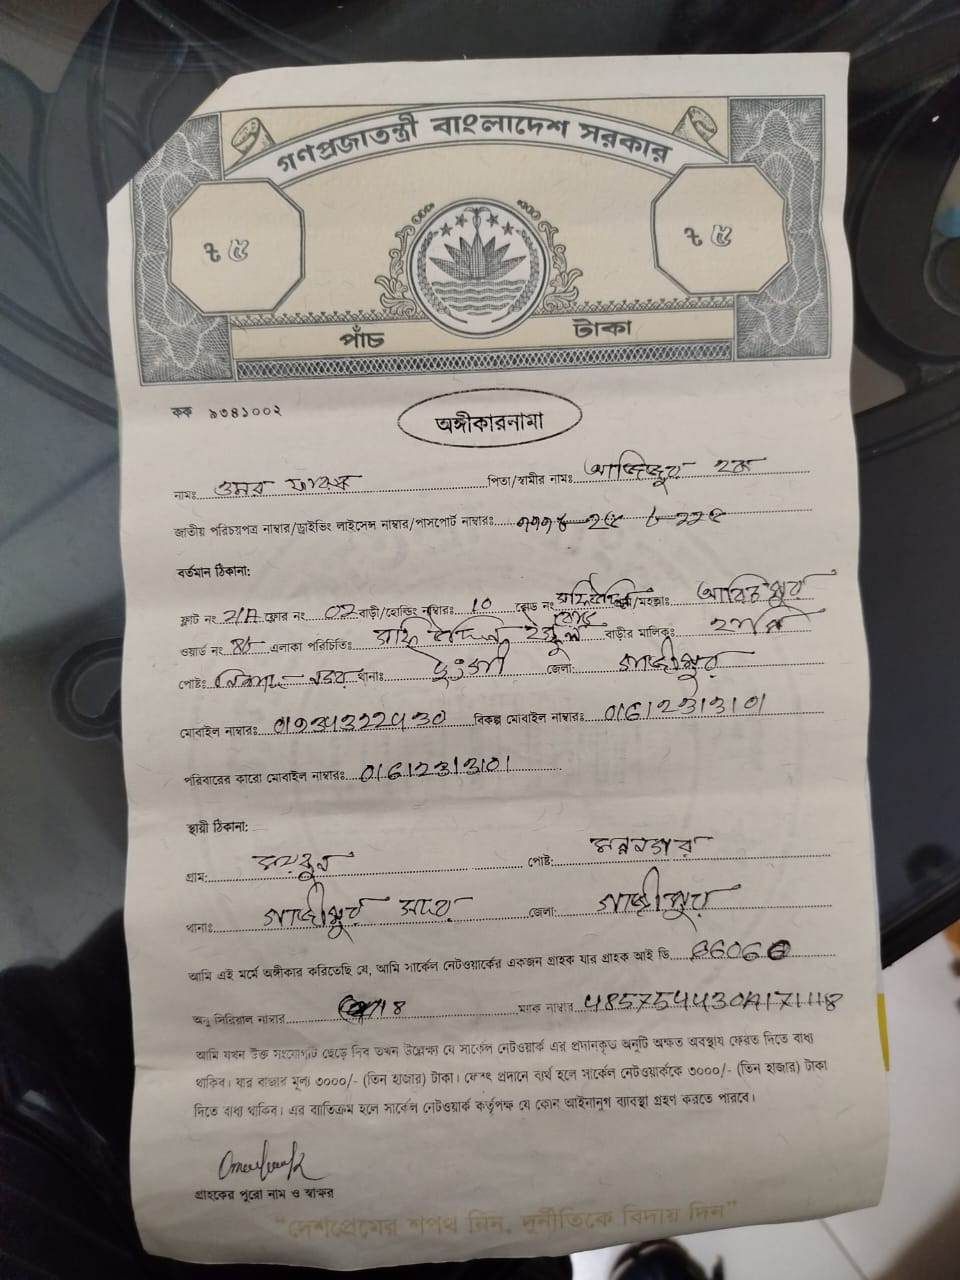 গণপ্রজাতন্ত্রী বাংলাদেশ সরকার
৳ ৫ ৳ ৫
পাঁচ টাকা
কক ৯৩৪১০০২
অঙ্গীকারনামা
নামঃ ওমর ফারুক পিতা/স্বামীর নামঃ আজিজুর হক
জাতীয় পরিচয়পত্র নাম্বার/ড্রাইভিং লাইসেন্স নাম্বার/পাসপোর্ট নাম্বারঃ
বর্তমান ঠিকানা:
ফ্লাট নং 2/A ফ্লোর নং 02 বাড়ী/হোল্ডিং নাম্বারঃ 10 রোড নং /মহল্লাঃ আরিচপুর
ওয়ার্ড নং এলাকা পরিচিতিঃ রোড বাড়ীর মালিকঃ
পোষ্টঃ থানাঃ টঙ্গী জেলা: গাজীপুর
মোবাইল নাম্বারঃ বিকল্প মোবাইল নাম্বারঃ 01612313101
পরিবারের কারো মোবাইল নাম্বারঃ 01612313101
স্থায়ী ঠিকানা:
গ্রাম: পোষ্ট:
থানাঃ গাজীপুর সদর জেলা: গাজীপুর
আমি এই মর্মে অঙ্গীকার করিতেছি যে, আমি সার্কেল নেটওয়ার্কের একজন গ্রাহক যার গ্রাহক আই ডি
অনু সিরিয়াল নাম্বার ম্যাক নাম্বার
আমি যখন উক্ত সংযোগটি ছেড়ে দিব তখন উল্লেক্ষ্য যে সার্কেল নেটওয়ার্ক এর প্রদানকৃত অনুটি অক্ষত অবস্থায় ফেরত দিতে বাধ্য
থাকিব। যার বাজার মূল্য ৩০০০/- (তিন হাজার) টাকা। ফেরৎ প্রদানে ব্যর্থ হলে সার্কেল নেটওয়ার্ককে ৩০০০/- (তিন হাজার) টাকা
দিতে বাধ্য থাকিব। এর ব্যতিক্রম হলে সার্কেল নেটওয়ার্ক কর্তৃপক্ষ যে কোন আইনানুগ ব্যবস্থা গ্রহণ করতে পারবে।
গ্রাহকের পুরো নাম ও স্বাক্ষর
"দেশপ্রেমের শপথ নিন, দুর্নীতিকে বিদায় দিন"